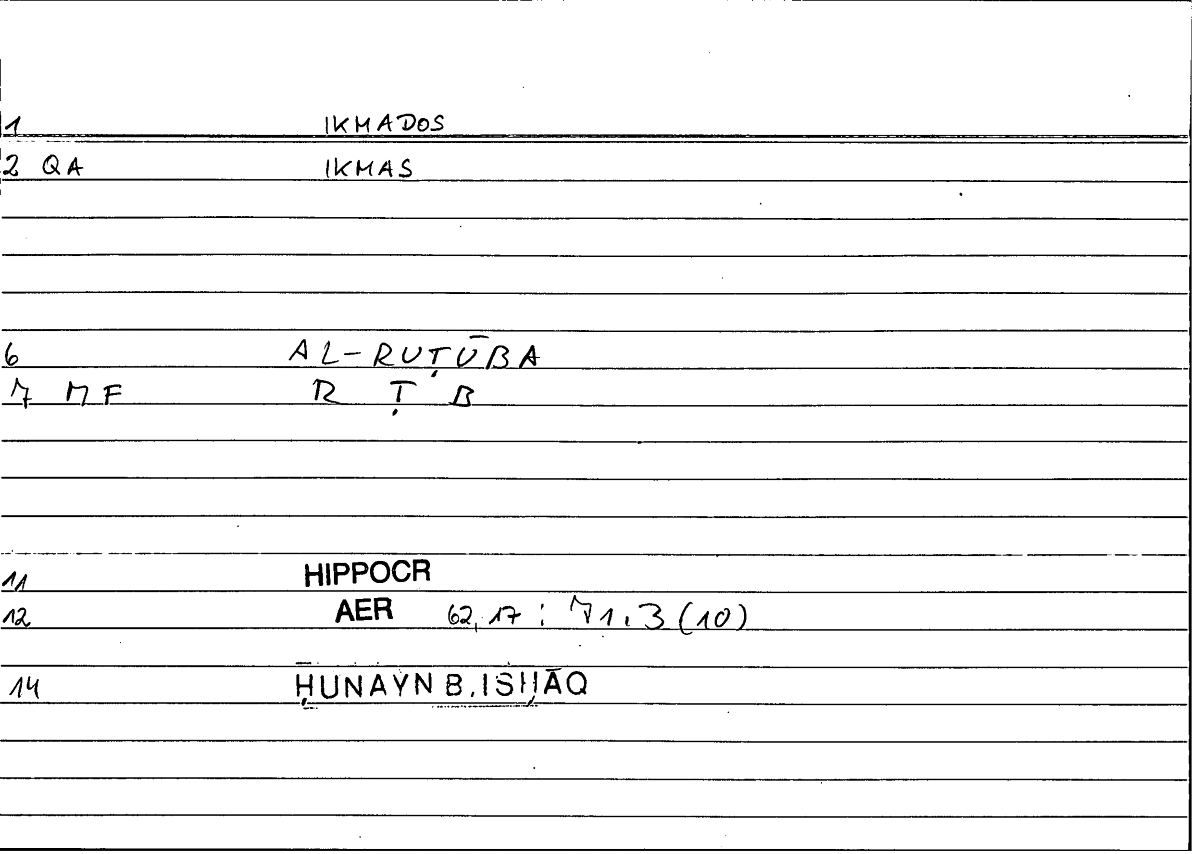 1 IKMADOS
2 QA IKMAS
6 AL-RUṬŪBA
7 MF R Ṭ B
11 HIPPOCR
12 AER 62,17 : 71,3 (10)
14 ḤUNAYN B. ISḤĀQ